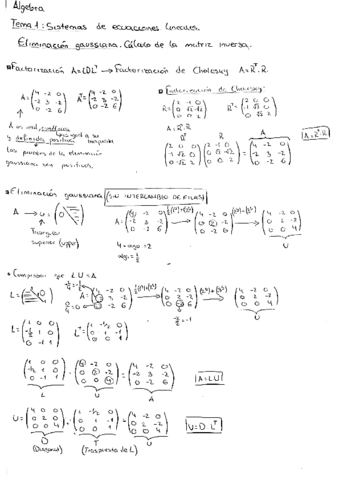 Álgebra
Tema 1: Sistemas de ecuaciones lineales.
Eliminación gaussiana. Cálculo de la matriz inversa.
Factorización A=LDLᵀ → Factorización de Cholesky A=Rᵀ·R.
A=(4 -2 0; -2 3 -2; 0 -2 6) Aᵀ=(4 -2 0; -2 3 -2; 0 -2 6)
A es real, simétrica
y definida positiva
Los pivotes de la eliminación
gaussiana son positivos.
Factorización de Cholesky:
R=(2 -1 0; 0 √2 -√2; 0 0 2) Rᵀ=(2 0 0; -1 √2 0; 0 -√2 2)
A=Rᵀ·R
Rᵀ R A
(2 0 0; -1 √2 0; 0 -√2 2)(2 -1 0; 0 √2 -√2; 0 0 2)=(4 -2 0; -2 3 -2; 0 -2 6) A=Rᵀ·R
Eliminación gaussiana (SIN INTERCAMBIO DE FILAS)
A → U=
Triangular
superior (upper)
A=(4 -2 0; -2 3 -2; 0 -2 6) → (4 -2 0; 0 2 -2; 0 -2 6) → (4 -2 0; 0 2 -2; 0 0 4)
U
Comprobar que LU=A
A=(4 -2 0; -2 3 -2; 0 -2 6) → (4 -2 0; 0 2 -2; 0 -2 6) → (4 -2 0; 0 2 -2; 0 0 4)
U
L=(1 0 0; -1/2 1 0; 0 -1 1) Lᵀ=(1 -1/2 0; 0 1 -1; 0 0 1)
(1 0 0; -1/2 1 0; 0 -1 1)·(4 -2 0; 0 2 -2; 0 0 4)=(4 -2 0; -2 3 -2; 0 -2 6) A=LU
L U A
U=(4 0 0; 0 2 0; 0 0 4)·(1 -1/2 0; 0 1 -1; 0 0 1)=(4 -2 0; 0 2 -2; 0 0 4) U=D Lᵀ
D T U
(Diagonal) (Traspuesta de L)